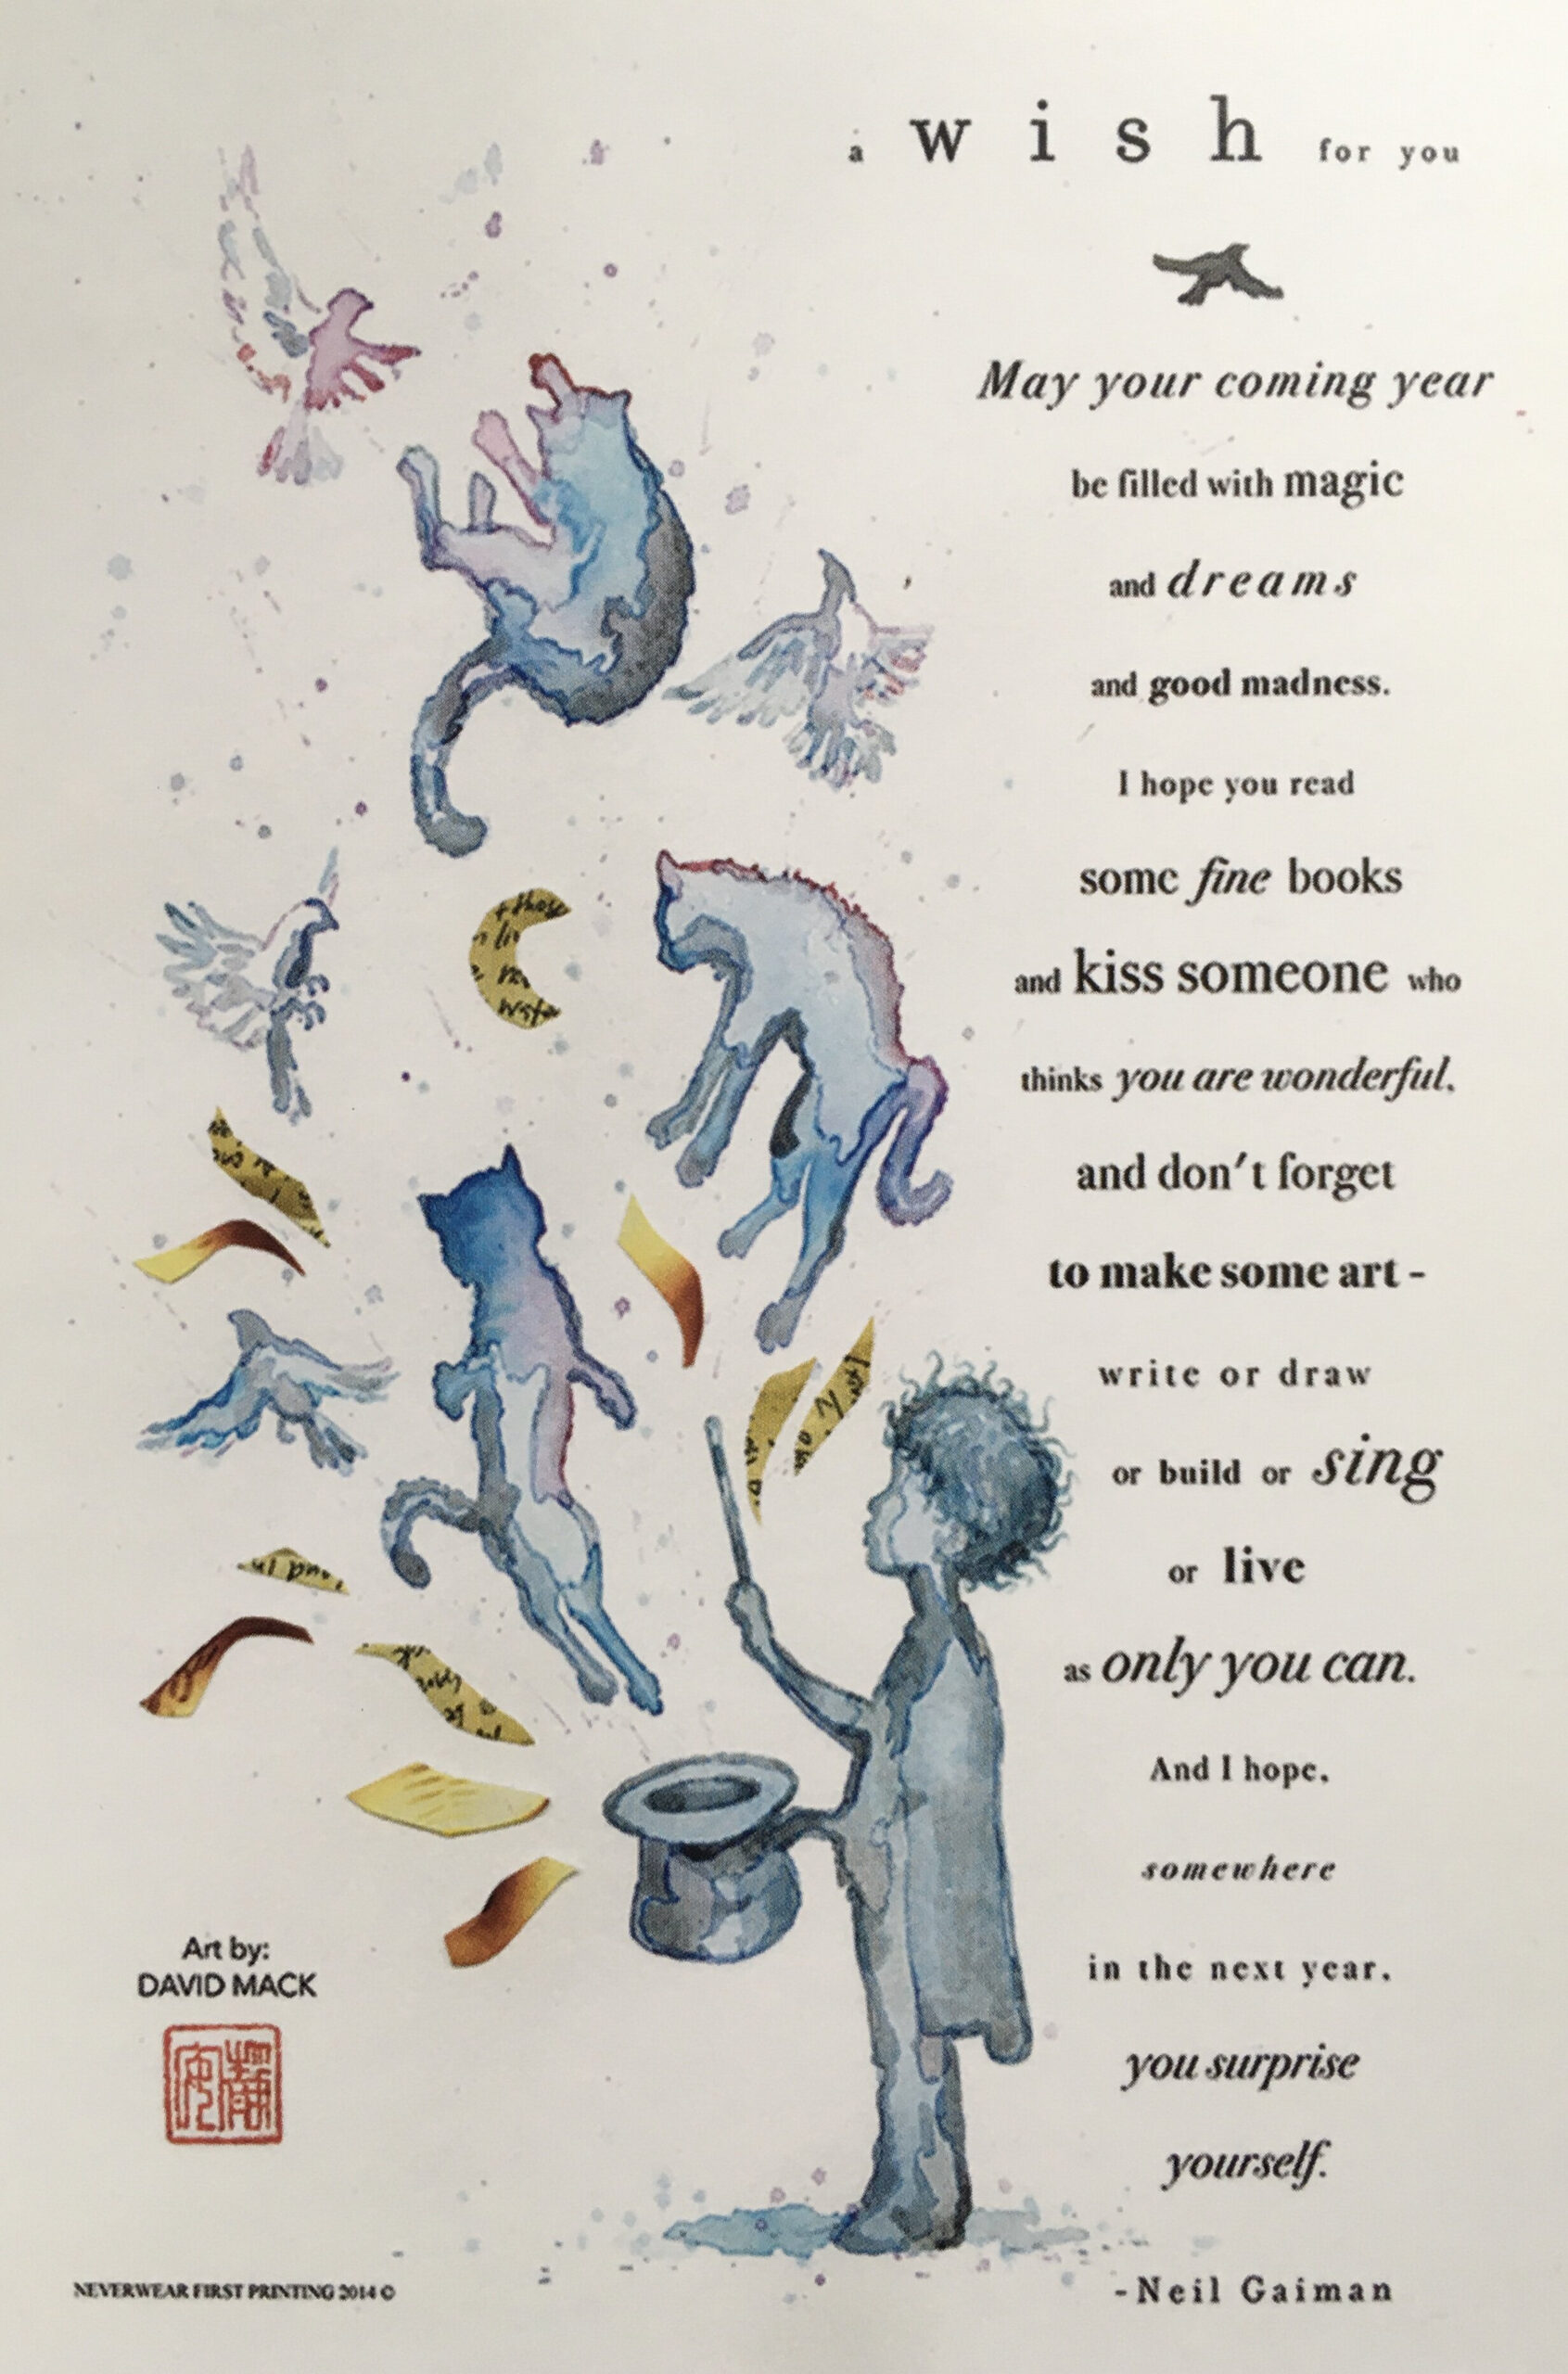 a wish for you
May your coming year
be filled with magic
and dreams
and good madness.
I hope you read
some fine books
and kiss someone who
thinks you are wonderful,
and don't forget
to make some art -
write or draw
or build or sing
or live
as only you can.
And I hope,
somewhere
in the next year,
you surprise
yourself.
-Neil Gaiman
Art by:
DAVID MACK
NEVERWEAR FIRST PRINTING 2014 ©